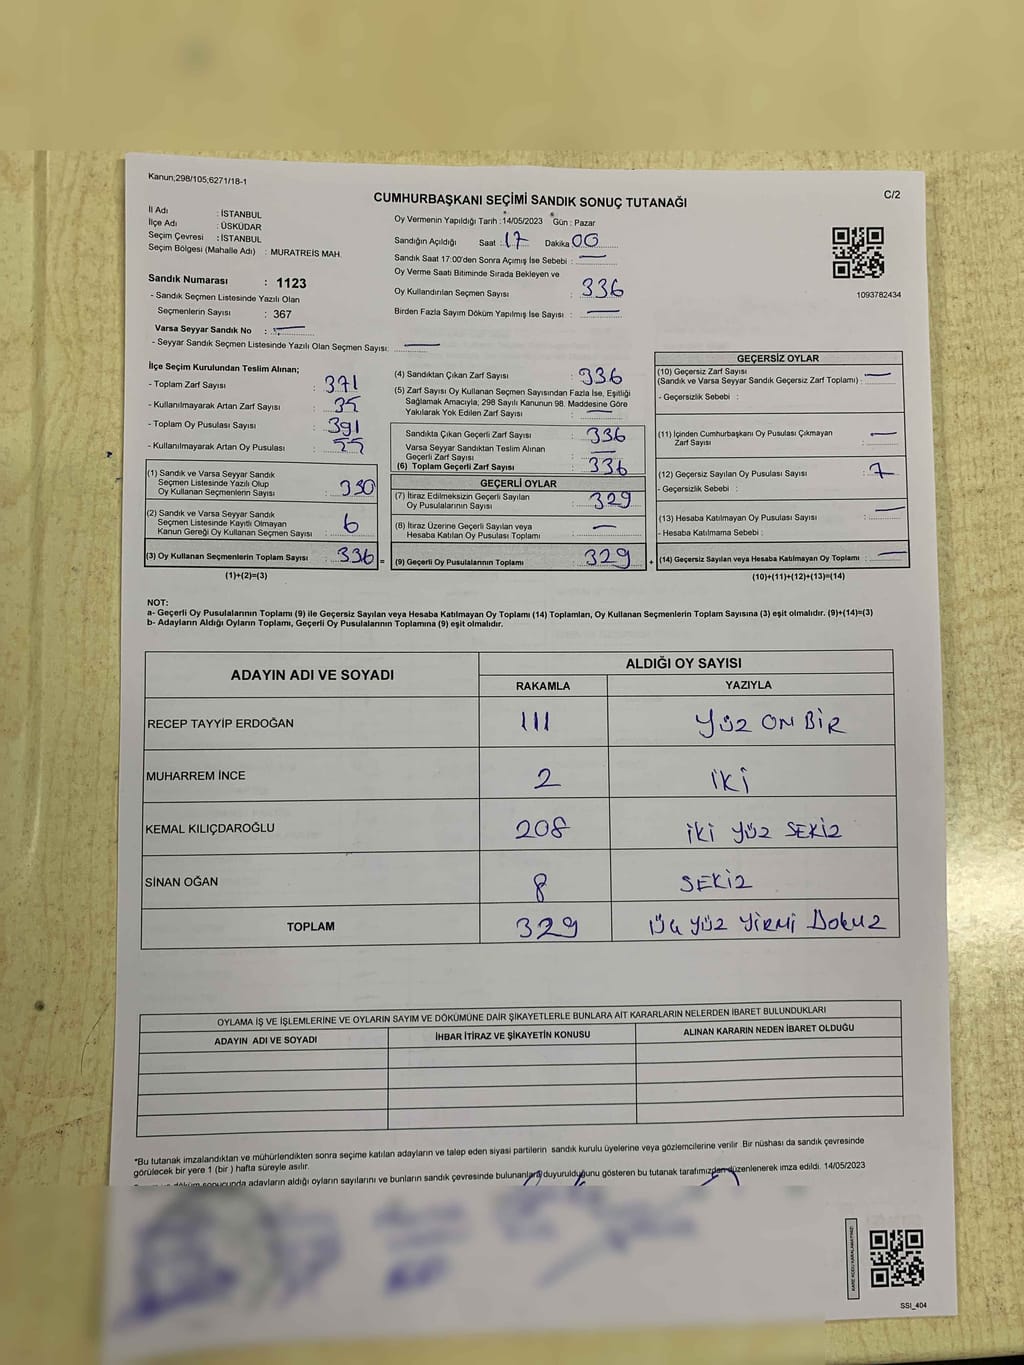 Kanun;298/105;6271/18-1
C/2
CUMHURBAŞKANI SEÇİMİ SANDIK SONUÇ TUTANAĞI
İl Adı : İSTANBUL
İlçe Adı : ÜSKÜDAR
Seçim Çevresi : İSTANBUL
Seçim Bölgesi (Mahalle Adı) : MURATREİS MAH.
Sandık Numarası : 1123
- Sandık Seçmen Listesinde Yazılı Olan
Seçmenlerin Sayısı : 367
Varsa Seyyar Sandık No :
- Seyyar Sandık Seçmen Listesinde Yazılı Olan Seçmen Sayısı:
Oy Vermenin Yapıldığı Tarih : 14/05/2023 Gün : Pazar
Sandığın Açıldığı Saat : 17 Dakika 00
Sandık Saat 17:00'den Sonra Açımış İse Sebebi :
Oy Verme Saati Bitiminde Sırada Bekleyen ve
Oy Kullandırılan Seçmen Sayısı : 336
Birden Fazla Sayım Döküm Yapılmış İse Sayısı :
1093782434
İlçe Seçim Kurulundan Teslim Alınan;
- Toplam Zarf Sayısı : 371
- Kullanılmayarak Artan Zarf Sayısı : 35
- Toplam Oy Pusulası Sayısı : 391
- Kullanılmayarak Artan Oy Pusulası : 55
(1) Sandık ve Varsa Seyyar Sandık
Seçmen Listesinde Yazılı Olup
Oy Kullanan Seçmenlerin Sayısı : 330
(2) Sandık ve Varsa Seyyar Sandık
Seçmen Listesinde Kayıtlı Olmayan
Kanun Gereği Oy Kullanan Seçmen Sayısı : 6
(3) Oy Kullanan Seçmenlerin Toplam Sayısı : 336 =
(1)+(2)=(3)
(4) Sandıktan Çıkan Zarf Sayısı : 336
(5) Zarf Sayısı Oy Kullanan Seçmen Sayısından Fazla İse, Eşitliği
Sağlamak Amacıyla; 298 Sayılı Kanunun 98. Maddesine Göre
Yakılarak Yok Edilen Zarf Sayısı :
Sandıkta Çıkan Geçerli Zarf Sayısı : 336
Varsa Seyyar Sandıktan Teslim Alınan
Geçerli Zarf Sayısı :
(6) Toplam Geçerli Zarf Sayısı : 336
GEÇERLİ OYLAR
(7) İtiraz Edilmeksizin Geçerli Sayılan
Oy Pusulalarının Sayısı : 329
(8) İtiraz Üzerine Geçerli Sayılan veya
Hesaba Katılan Oy Pusulası Toplamı :
(9) Geçerli Oy Pusulalarının Toplamı : 329 +
GEÇERSİZ OYLAR
(10) Geçersiz Zarf Sayısı
(Sandık ve Varsa Seyyar Sandık Geçersiz Zarf Toplamı) :
- Geçersizlik Sebebi :
(11) İçinden Cumhurbaşkanı Oy Pusulası Çıkmayan
Zarf Sayısı :
(12) Geçersiz Sayılan Oy Pusulası Sayısı : 7
- Geçersizlik Sebebi :
(13) Hesaba Katılmayan Oy Pusulası Sayısı :
- Hesaba Katılmama Sebebi :
(14) Geçersiz Sayılan veya Hesaba Katılmayan Oy Toplamı :
(10)+(11)+(12)+(13)=(14)
NOT:
a- Geçerli Oy Pusulalarının Toplamı (9) ile Geçersiz Sayılan veya Hesaba Katılmayan Oy Toplamı (14) Toplamları, Oy Kullanan Seçmenlerin Toplam Sayısına (3) eşit olmalıdır. (9)+(14)=(3)
b- Adayların Aldığı Oyların Toplamı, Geçerli Oy Pusulalarının Toplamına (9) eşit olmalıdır.
ADAYIN ADI VE SOYADI
ALDIĞI OY SAYISI
RAKAMLA YAZIYLA
RECEP TAYYİP ERDOĞAN 111 YÜZ ON BİR
MUHARREM İNCE 2 İKİ
KEMAL KILIÇDAROĞLU 208 İKİ YÜZ SEKİZ
SİNAN OĞAN 8 SEKİZ
TOPLAM 329 ÜÇ YÜZ YİRMİ DOKUZ
OYLAMA İŞ VE İŞLEMLERİNE VE OYLARIN SAYIM VE DÖKÜMÜNE DAİR ŞİKAYETLERLE BUNLARA AİT KARARLARIN NELERDEN İBARET BULUNDUKLARI
ADAYIN ADI VE SOYADI İHBAR İTİRAZ VE ŞİKAYETİN KONUSU ALINAN KARARIN NEDEN İBARET OLDUĞU
*Bu tutanak imzalandıktan ve mühürlendikten sonra seçime katılan adayların ve talep eden siyasi partilerin sandık kurulu üyelerine veya gözlemcilerine verilir. Bir nüshası da sandık çevresinde
görülecek bir yere 1 (bir) hafta süreyle asılır.
sonucunda adayların aldığı oyların sayılarını ve bunların sandık çevresinde bulunanlara duyurulduğunu gösteren bu tutanak tarafımızdan düzenlenerek imza edildi. 14/05/2023
SSI_404